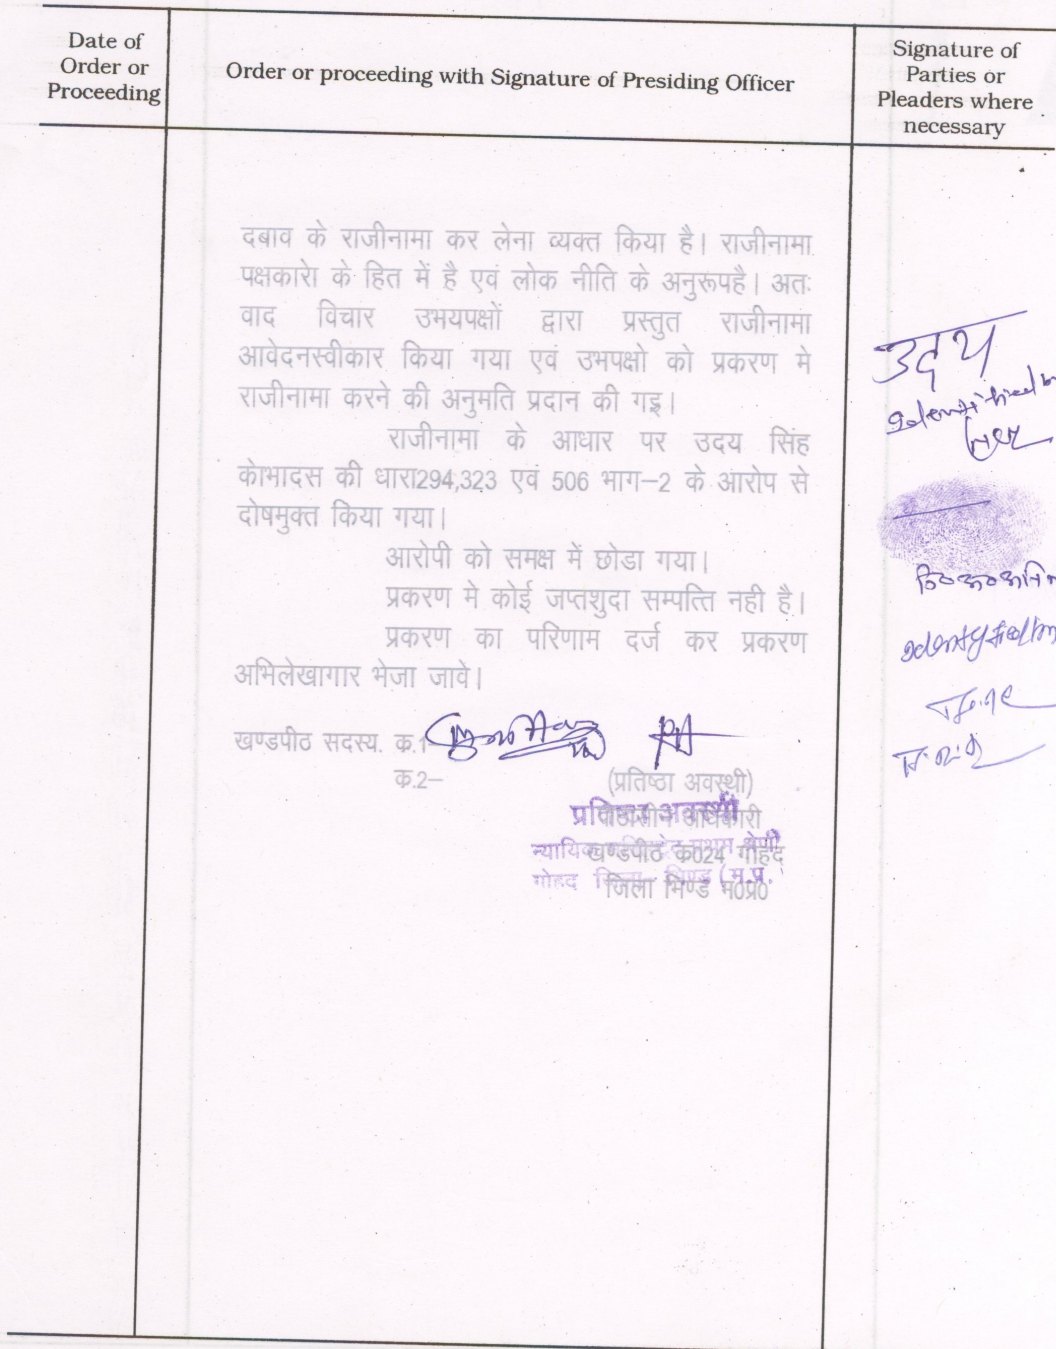 Date of
Order or
Proceeding
Order or proceeding with Signature of Presiding Officer
Signature of
Parties or
Pleaders where
necessary
दबाव के राजीनामा कर लेना व्यक्त किया है। राजीनामा
पक्षकारेा के हित में है एवं लोक नीति के अनुरूपहै। अतः
वाद विचार उभयपक्षों द्वारा प्रस्तुत राजीनामा
आवेदनस्वीकार किया गया एवं उभपक्षो को प्रकरण मे
राजीनामा करने की अनुमति प्रदान की गइ।
राजीनामा के आधार पर उदय सिंह
केाभादस की धारा294,323 एवं 506 भाग–2 के आरोप से
दोषमुक्त किया गया।
आरोपी को समक्ष में छोडा गया।
प्रकरण मे कोई जप्तशुदा सम्पत्ति नही है।
प्रकरण का परिणाम दर्ज कर प्रकरण
अभिलेखागार भेजा जावे।
खण्डपीठ सदस्य. क.1–
क.2–
(प्रतिष्ठा अवस्थी)
प्रतिष्ठा अवस्थी
खण्डपीठ क024 गोहद
गोहद
जिला भिण्ड म0प्र0
उदय